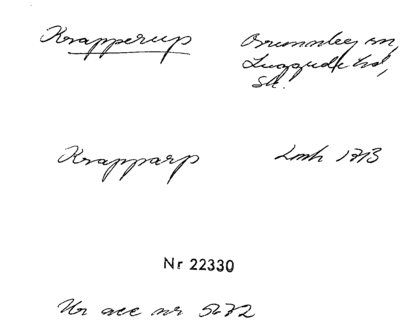 Krapperup
Brunnby sn,
Luggude hd,
Sk.
Krapparp
Lmh 1713
Nr 22330
Ur acc nr 5672